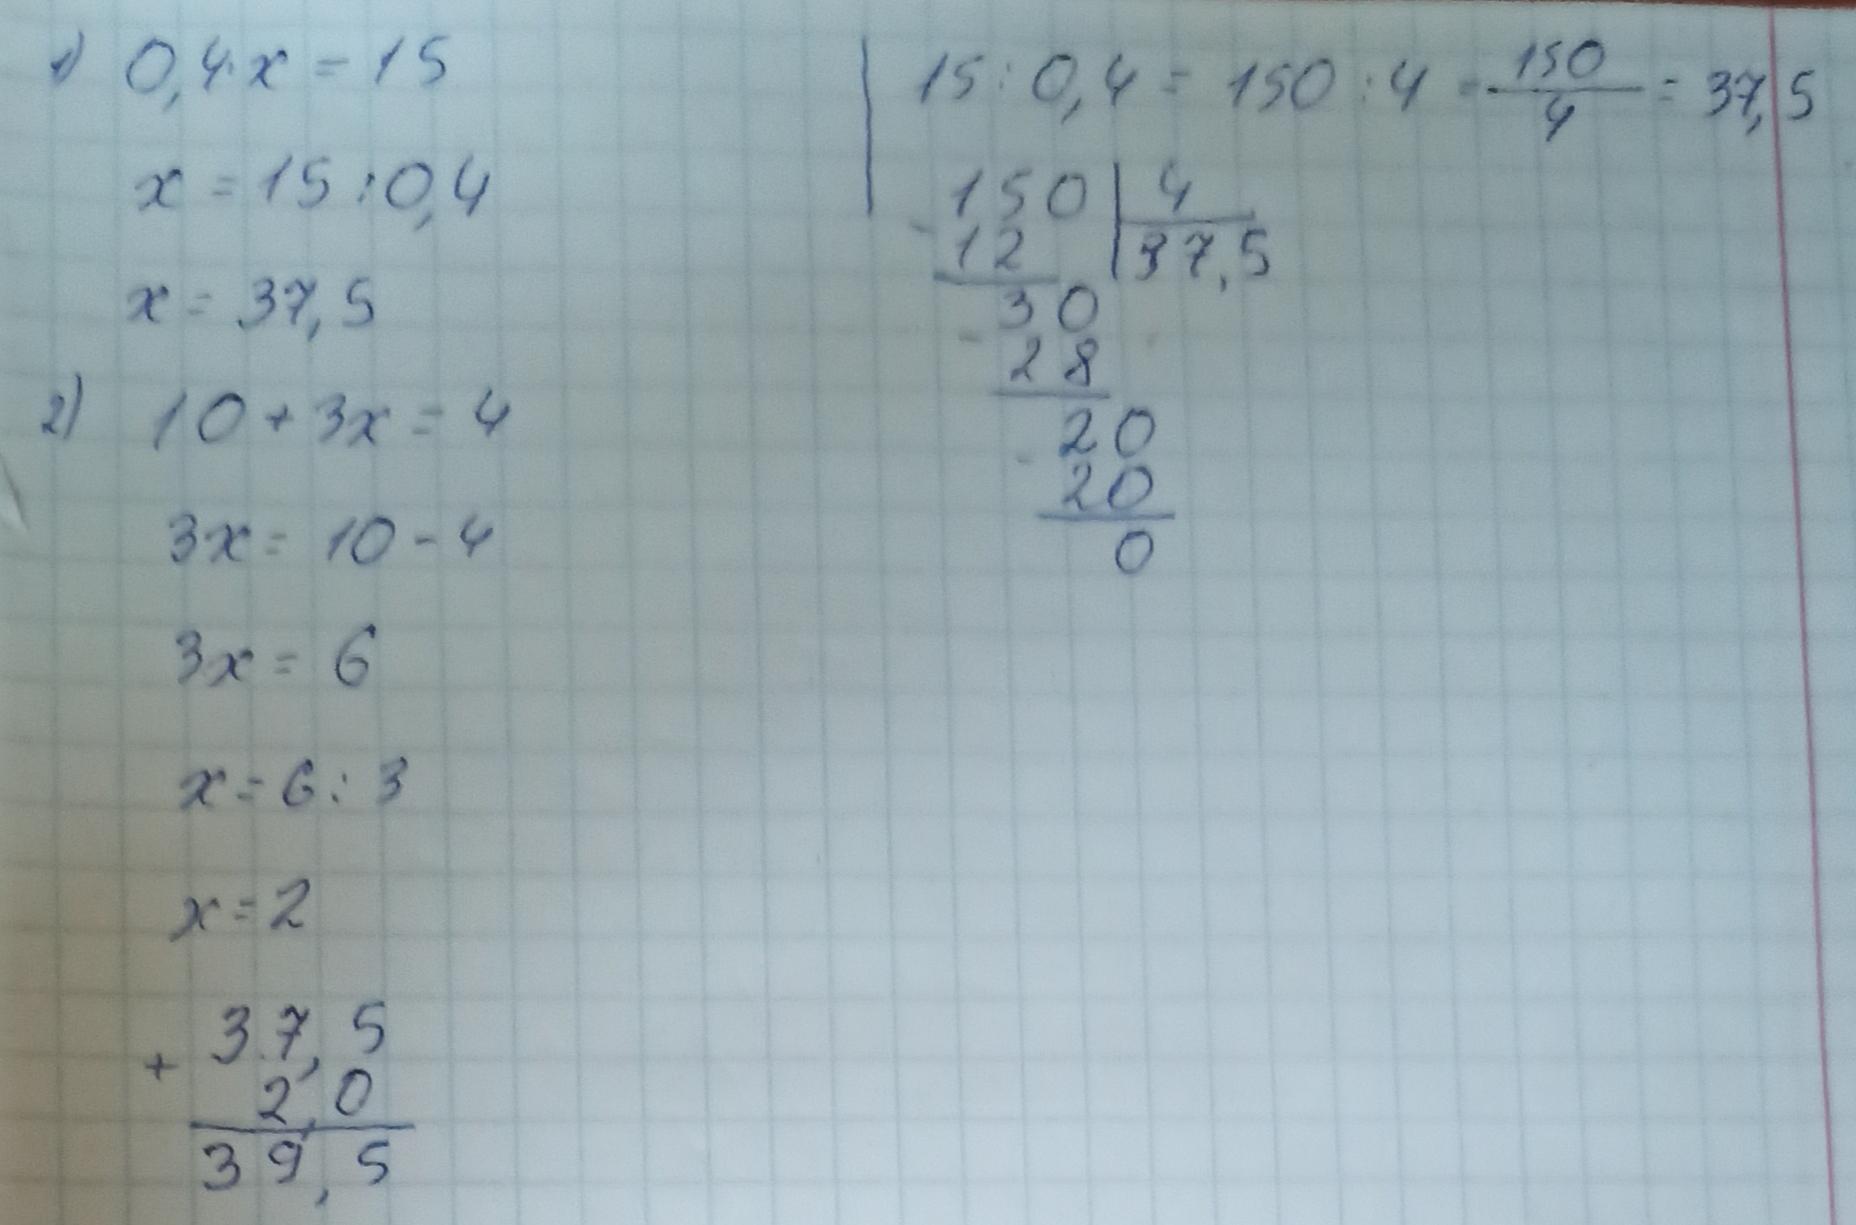 1) 0,4·x = 15
x = 15 : 0,4
x = 37,5
2) 10 + 3x = 4
3x = 10 - 4
3x = 6
x = 6 : 3
x = 2
+ 37,5
2,0
39,5
15 : 0,4 = 150 : 4 = 150/4 = 37,5
150 | 4
- 12 | 37,5
30
- 28
20
- 20
0